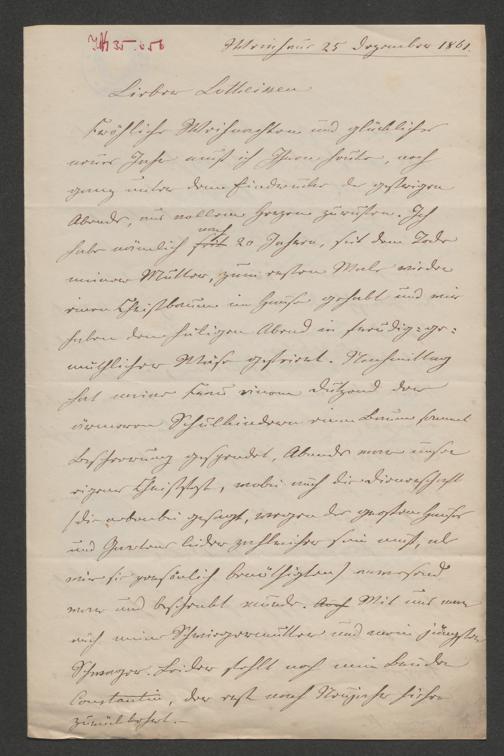 IN 35.056
Weinhaus 25 Dezember 1861.
Lieber Lotheissen
Fröhliche Weihnachten und glückliches
neues Jahr muß ich Ihnen heute, noch
ganz unter dem Eindrucke des gestrigen
Abends, aus vollem Herzen zurufen. Ich
habe nämlich nach 20 Jahren, seit dem Tode
meiner Mutter, zum ersten Male wieder
einen Christbaum im Hause gehabt und wir
haben den heiligen Abend in freudig-ge-
müthlicher Weise gefeiert. Nachmittag
hat meine Frau einem Dutzend der
ärmeren Schulkindern einen Baum sammt
Bescheerung gespendet, Abends war unser
eigenes Christfest, wobei auch die Dienerschaft
(die nebenbei gesagt, wegen des großen Hauses
und Gartens leider zahlreicher sein muß, als
wir sie persönlich benöthigten) anwesend
war und beschenkt wurde. Mit uns war
auch meine Schwiegermutter und mein jüngster
Schwager. Leider fehlt noch mein Bruder
Constantin, der erst nach Neujahr hieher
zurückkehrt.-